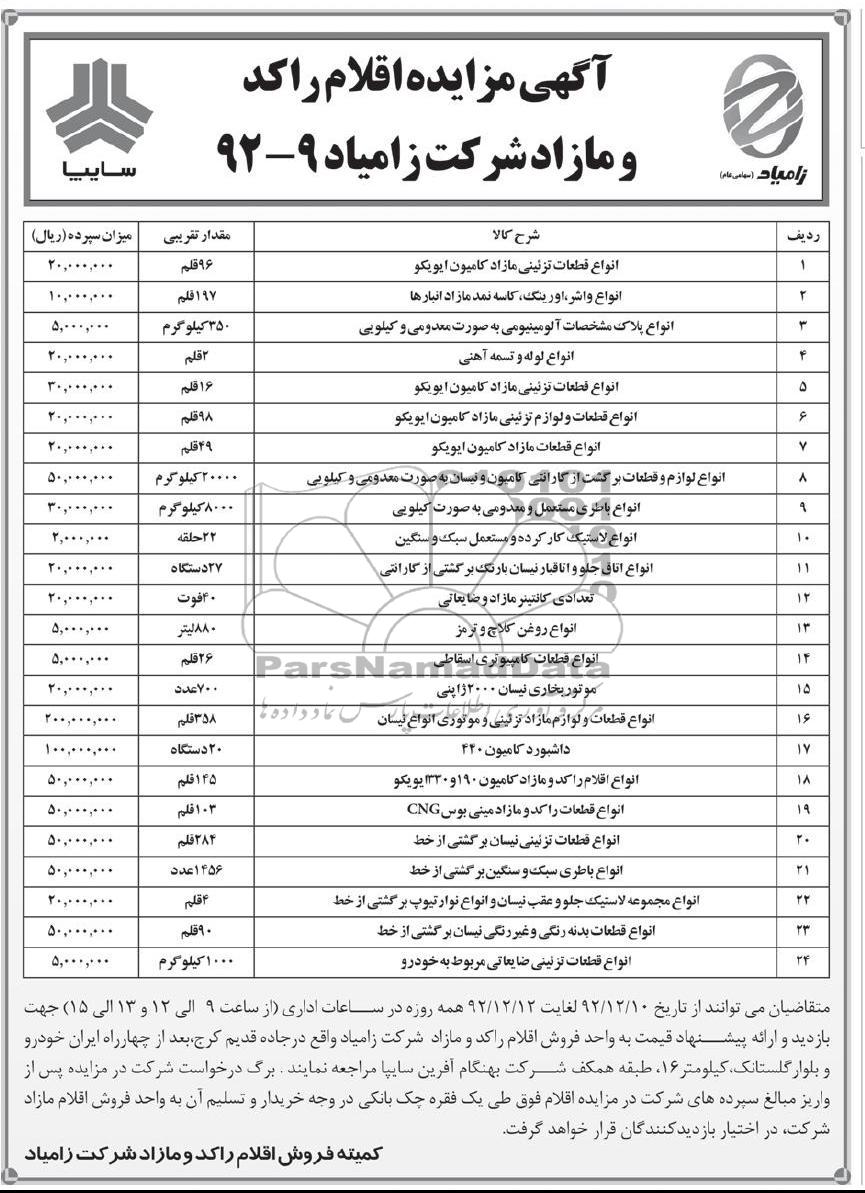 آگهی مزایده اقلام راکد
و مازاد شرکت زامیاد ۹-۹۲
سایپا
زامیاد (سهامی عام)
ردیف شرح کالا مقدار تقریبی میزان سپرده (ریال)
۱ انواع قطعات تزئینی مازاد کامیون ایویکو ۹۶قلم ۲۰,۰۰۰,۰۰۰
۲ انواع واشر،اورینگ،کاسه نمد مازاد انبارها ۱۹۷قلم ۱۰,۰۰۰,۰۰۰
۳ انواع پلاک مشخصات آلومینیومی به صورت معدومی و کیلویی ۳۵۰کیلوگرم ۵,۰۰۰,۰۰۰
۴ انواع لوله و تسمه آهنی ۲قلم ۲۰,۰۰۰,۰۰۰
۵ انواع قطعات تزئینی مازاد کامیون ایویکو ۱۶قلم ۳۰,۰۰۰,۰۰۰
۶ انواع قطعات و لوازم تزئینی مازاد کامیون ایویکو ۹۸قلم ۲۰,۰۰۰,۰۰۰
۷ انواع قطعات مازاد کامیون ایویکو ۴۹قلم ۲۰,۰۰۰,۰۰۰
۸ انواع لوازم و قطعات برگشت از گارانتی کامیون و نیسان به صورت معدومی و کیلویی ۲۰۰۰۰کیلوگرم ۵۰,۰۰۰,۰۰۰
۹ انواع باطری مستعمل و معدومی به صورت کیلویی ۸۰۰۰کیلوگرم ۳۰,۰۰۰,۰۰۰
۱۰ انواع لاستیک کارکرده و مستعمل سبک و سنگین ۲۲حلقه ۲,۰۰۰,۰۰۰
۱۱ انواع اتاق جلو و اتاقبار نیسان بارنگ برگشتی از گارانتی ۲۷دستگاه ۲۰,۰۰۰,۰۰۰
۱۲ تعدادی کانتینر مازاد و ضایعاتی ۴۰فوت ۲۰,۰۰۰,۰۰۰
۱۳ انواع روغن کلاچ و ترمز ۸۸۰لیتر ۵,۰۰۰,۰۰۰
۱۴ انواع قطعات کامپیوتری اسقاطی ۲۶قلم ۵,۰۰۰,۰۰۰
۱۵ موتور بخاری نیسان ۲۰۰۰ژاپنی ۷۰۰عدد ۲۰,۰۰۰,۰۰۰
۱۶ انواع قطعات و لوازم مازاد تزئینی و موتوری انواع نیسان ۳۵۸قلم ۲۰۰,۰۰۰,۰۰۰
۱۷ داشبورد کامیون ۴۴۰ ۲۰دستگاه ۱۰۰,۰۰۰,۰۰۰
۱۸ انواع اقلام راکد و مازاد کامیون ۱۹۰و۳۳۰ایویکو ۱۴۵قلم ۵۰,۰۰۰,۰۰۰
۱۹ انواع قطعات راکد و مازاد مینی بوس CNG ۱۰۳قلم ۵۰,۰۰۰,۰۰۰
۲۰ انواع قطعات تزئینی نیسان برگشتی از خط ۲۸۴قلم ۵۰,۰۰۰,۰۰۰
۲۱ انواع باطری سبک و سنگین برگشتی از خط ۱۴۵۶عدد ۵۰,۰۰۰,۰۰۰
۲۲ انواع مجموعه لاستیک جلو و عقب نیسان و انواع نوار تیوپ برگشتی از خط ۴قلم ۲۰,۰۰۰,۰۰۰
۲۳ انواع قطعات بدنه رنگی و غیر رنگی نیسان برگشتی از خط ۹۰قلم ۵۰,۰۰۰,۰۰۰
۲۴ انواع قطعات تزئینی ضایعاتی مربوط به خودرو ۱۰۰۰کیلوگرم ۵,۰۰۰,۰۰۰
ParsNamadData
مرکز فرآوری اطلاعات پارس نماد داده ها
متقاضیان می توانند از تاریخ ۹۲/۱۲/۱۰ لغایت ۹۲/۱۲/۱۲ همه روزه در ساعات اداری (از ساعت ۹ الی ۱۲ و ۱۳ الی ۱۵) جهت
بازدید و ارائه پیشنهاد قیمت به واحد فروش اقلام راکد و مازاد شرکت زامیاد واقع درجاده قدیم کرج،بعد از چهارراه ایران خودرو
و بلوار گلستانک،کیلومتر۱۶، طبقه همکف شرکت بهنگام آفرین سایپا مراجعه نمایند . برگ درخواست شرکت در مزایده پس از
واریز مبالغ سپرده های شرکت در مزایده اقلام فوق طی یک فقره چک بانکی در وجه خریدار و تسلیم آن به واحد فروش اقلام مازاد
شرکت، در اختیار بازدیدکنندگان قرار خواهد گرفت.
کمیته فروش اقلام راکد و مازاد شرکت زامیاد